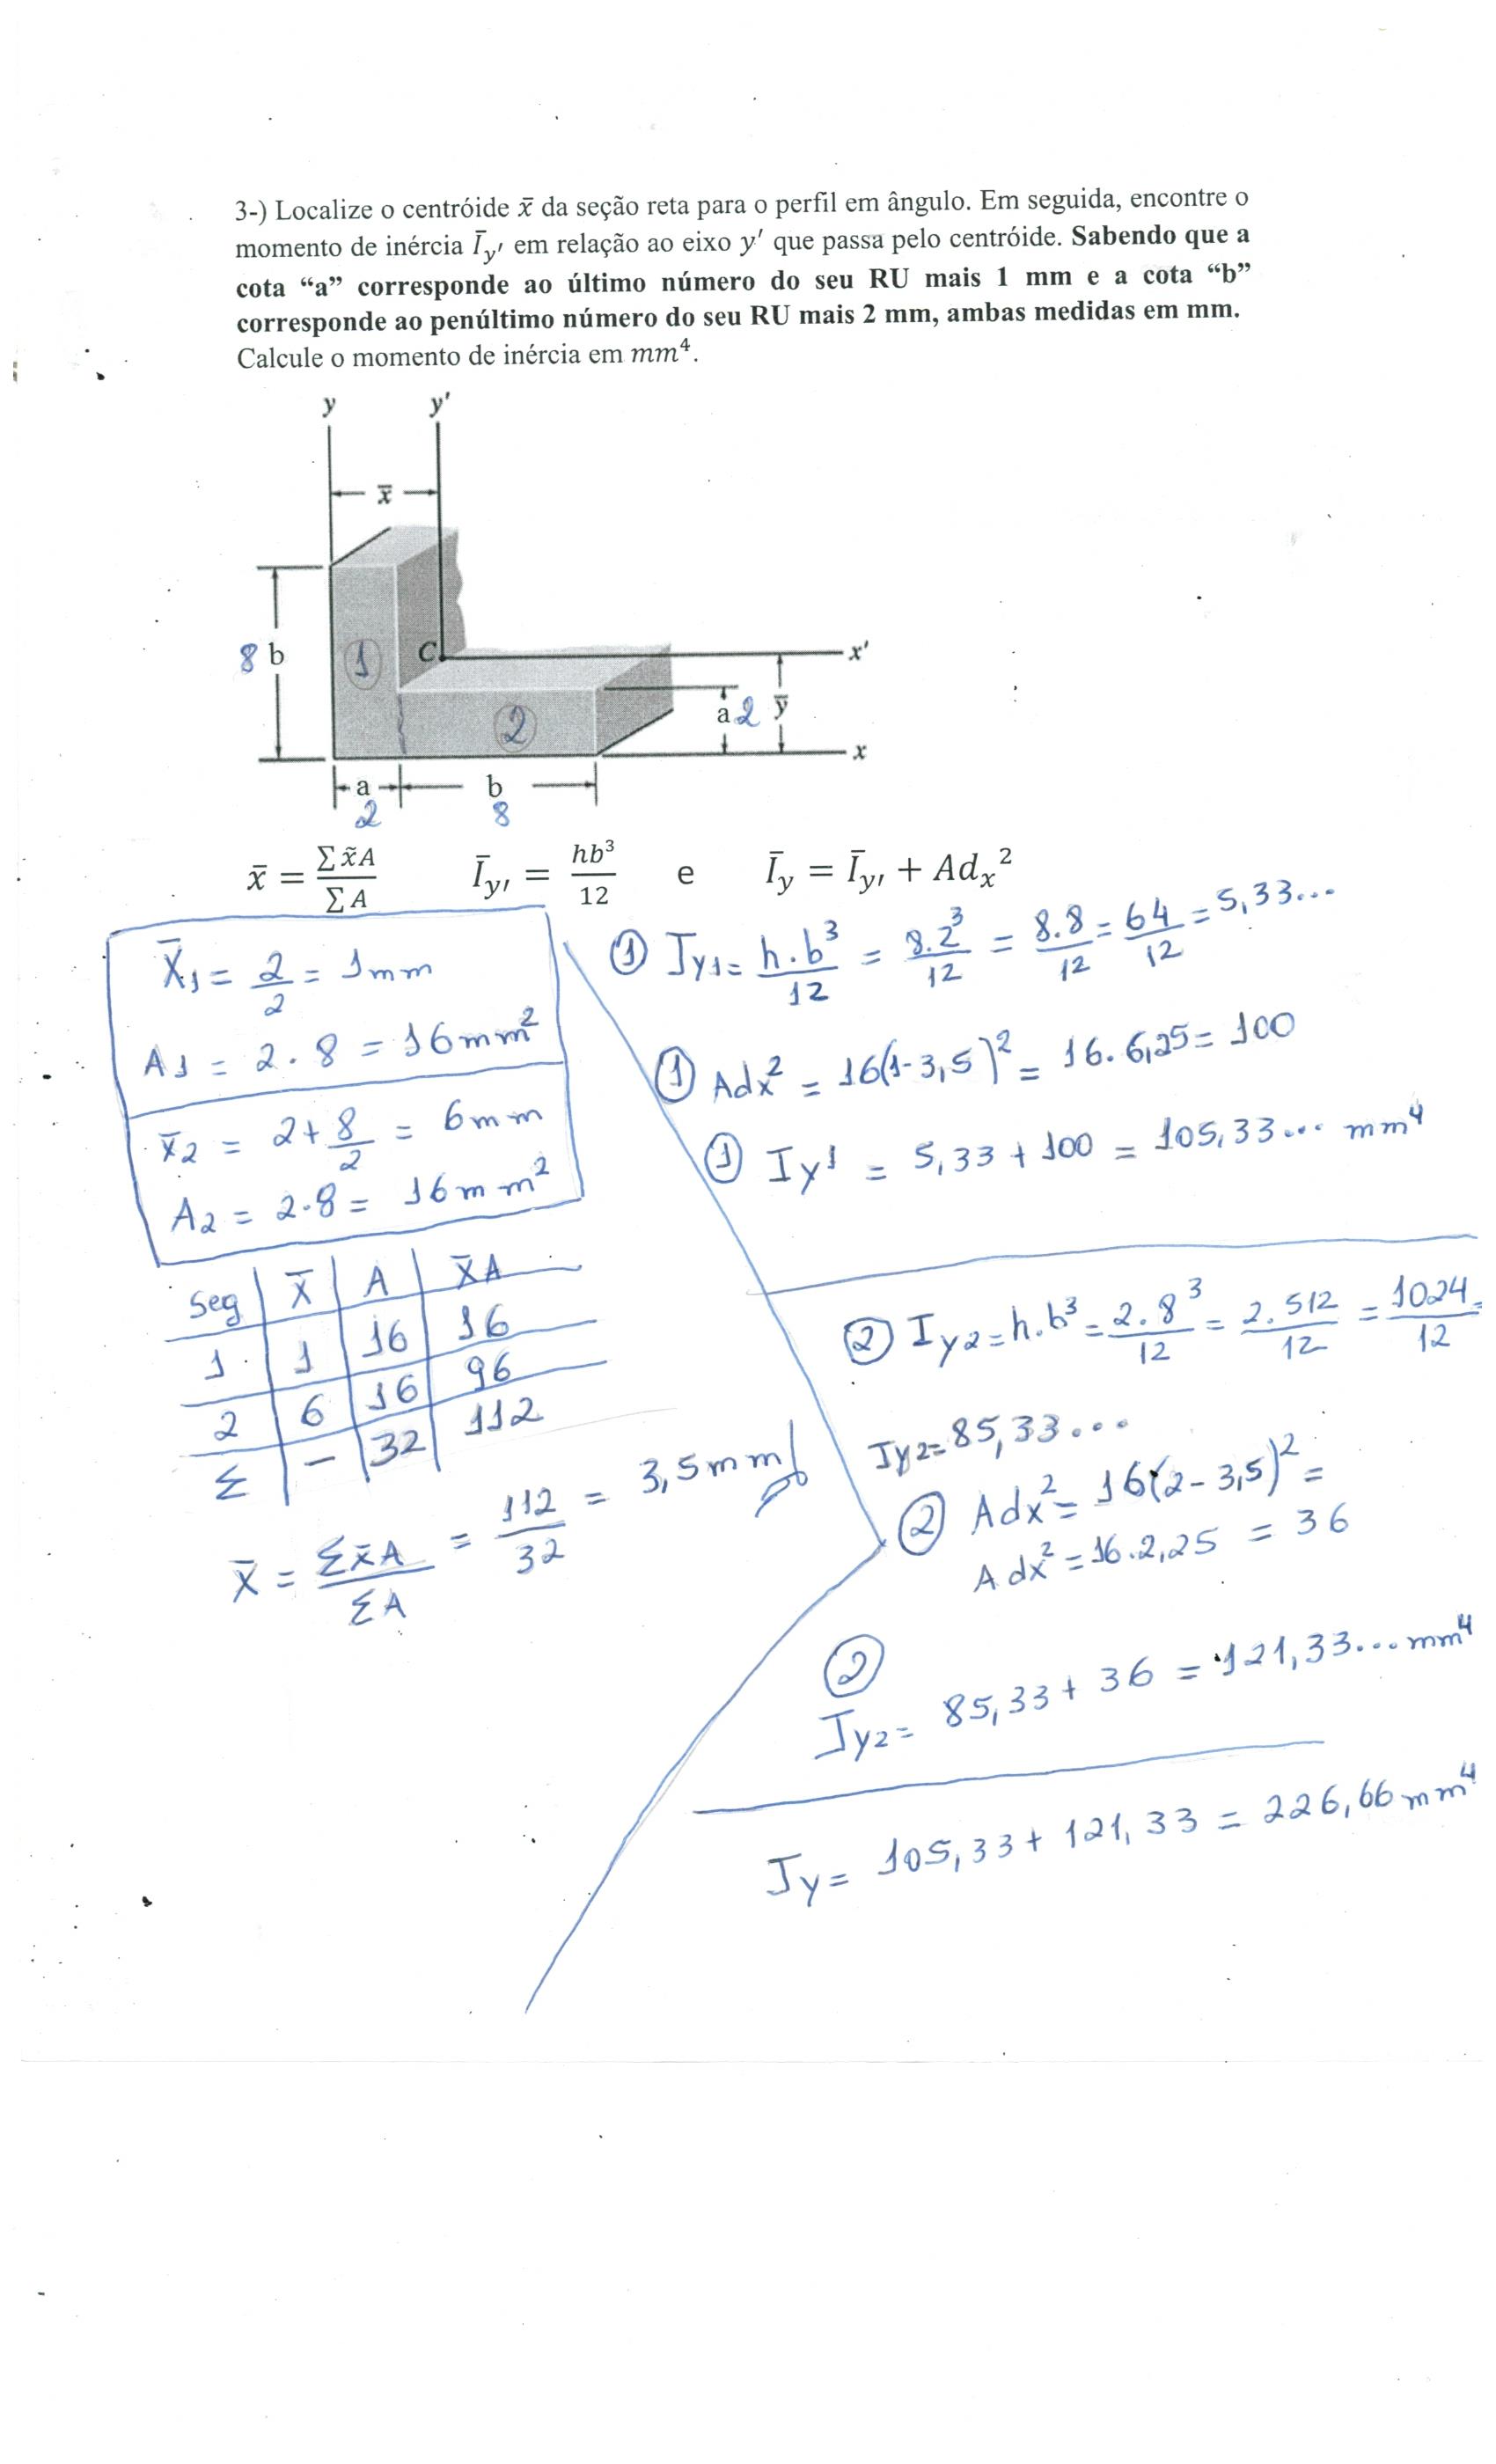 3-) Localize o centróide x̄ da seção reta para o perfil em ângulo. Em seguida, encontre o
momento de inércia Ī_y′ em relação ao eixo y′ que passa pelo centróide. Sabendo que a
cota “a” corresponde ao último número do seu RU mais 1 mm e a cota “b”
corresponde ao penúltimo número do seu RU mais 2 mm, ambas medidas em mm.
Calcule o momento de inércia em mm⁴.
y y′
x̄
8 b 1 C x′
2 a 2 ȳ
x
a b
2 8
x̄ = ∑x̃A / ∑A Ī_y′ = hb³ / 12 e Ī_y = Ī_y′ + Ad_x²
X̄1 = 2/2 = 1mm
A1 = 2.8 = 16mm²
x̄2 = 2+8/2 = 6mm
A2 = 2.8 = 16mm²
Seg X̄ A X̄A
1 1 16 16
2 6 16 96
Σ – 32 112
X̄ = Σx̄A / ΣA = 112/32 = 3,5mm
① Iy1= h.b³/12 = 8.2³/12 = 8.8/12 = 64/12 = 5,33...
① Adx² = 16(1-3,5)² = 16.6,25= 100
① Iy1 = 5,33 + 100 = 105,33... mm⁴
② Iy2= h.b³ = 2.8³/12 = 2.512/12 = 1024/12 =
Iy2= 85,33...
② Adx² = 16(2-3,5)² =
Adx² = 16.2,25 = 36
②
Iy2= 85,33+ 36 = 121,33...mm⁴
Iy= 105,33+ 121,33 = 226,66mm⁴